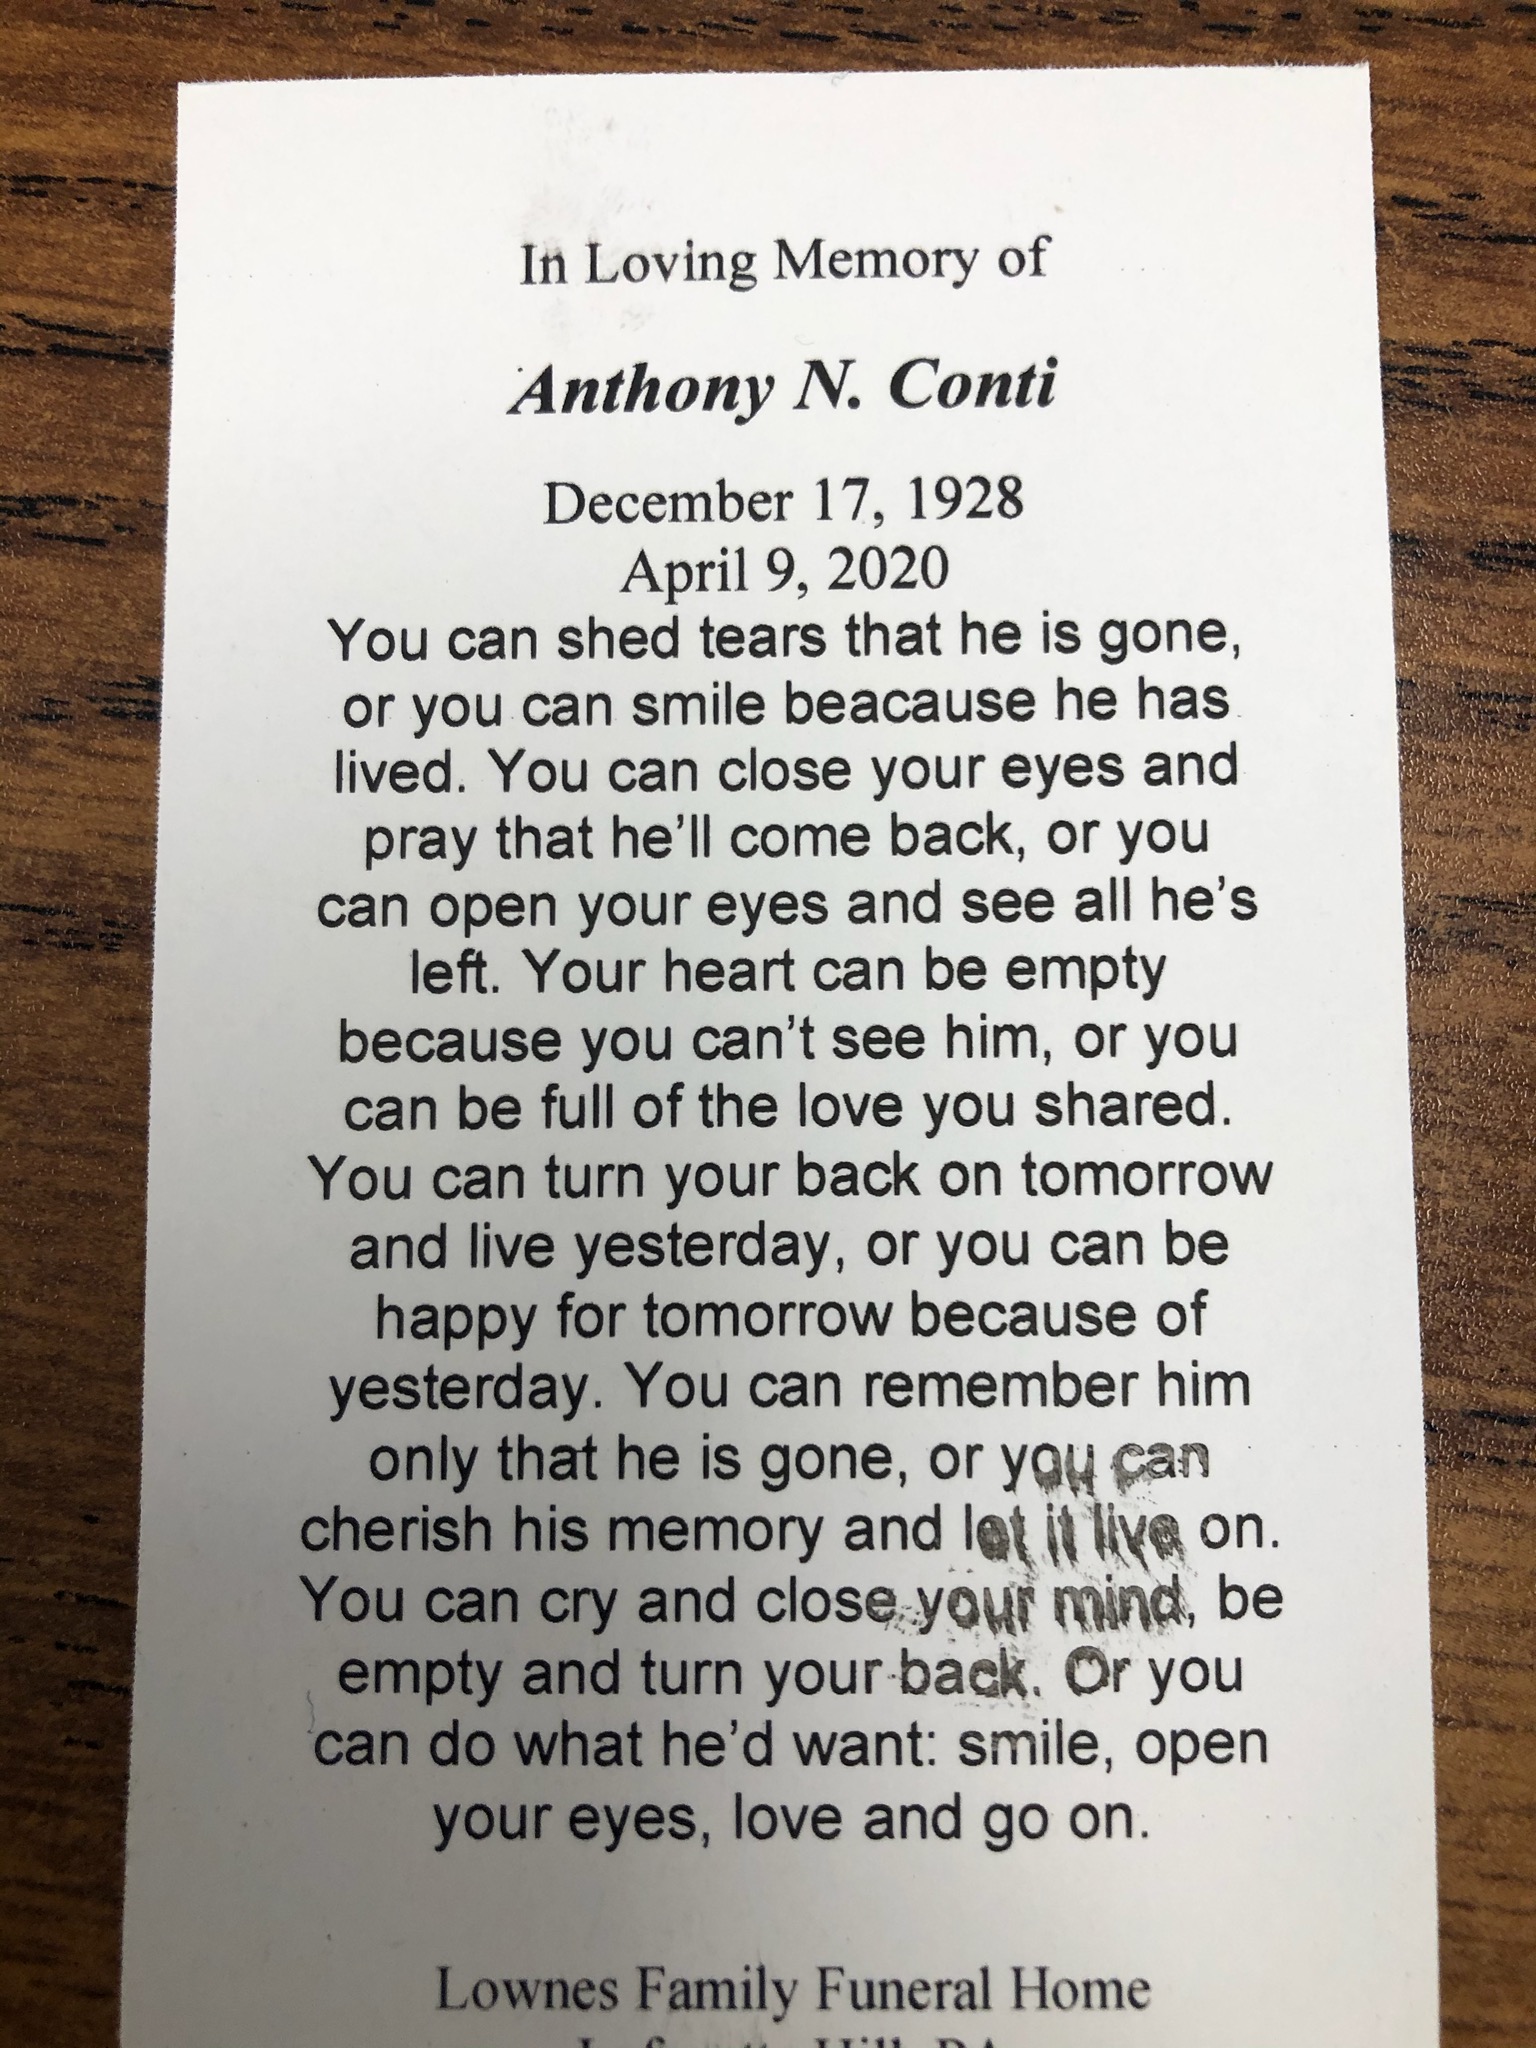 In Loving Memory of
Anthony N. Conti
December 17, 1928
April 9, 2020
You can shed tears that he is gone,
or you can smile beacause he has
lived. You can close your eyes and
pray that he'll come back, or you
can open your eyes and see all he's
left. Your heart can be empty
because you can't see him, or you
can be full of the love you shared.
You can turn your back on tomorrow
and live yesterday, or you can be
happy for tomorrow because of
yesterday. You can remember him
only that he is gone, or you can
cherish his memory and let it live on.
You can cry and close your mind, be
empty and turn your back. Or you
can do what he'd want: smile, open
your eyes, love and go on.
Lownes Family Funeral Home